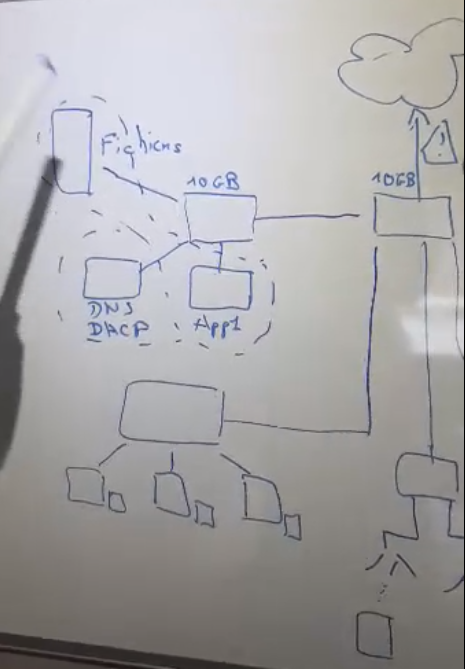 Fichiers
10GB
10GB
!
DNS
DHCP
App1
?